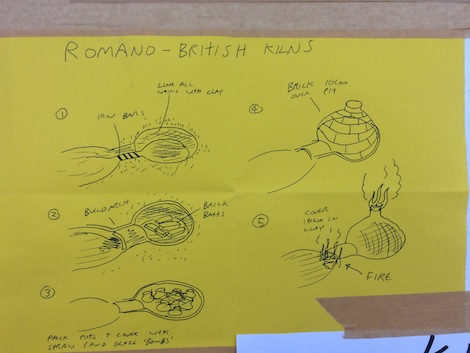 ROMANO-BRITISH KILNS
①
IRON BARS
LINE ALL
WALLS WITH CLAY
②
BUILD ARCH
BRICK
BATTS
③
PACK POTS + COVER WITH
STRAW (AND GLAZE 'BOMBS')
④
BRICK IGLOO
OVER PIT
⑤
COVER
IGLOO IN
CLAY
FIRE